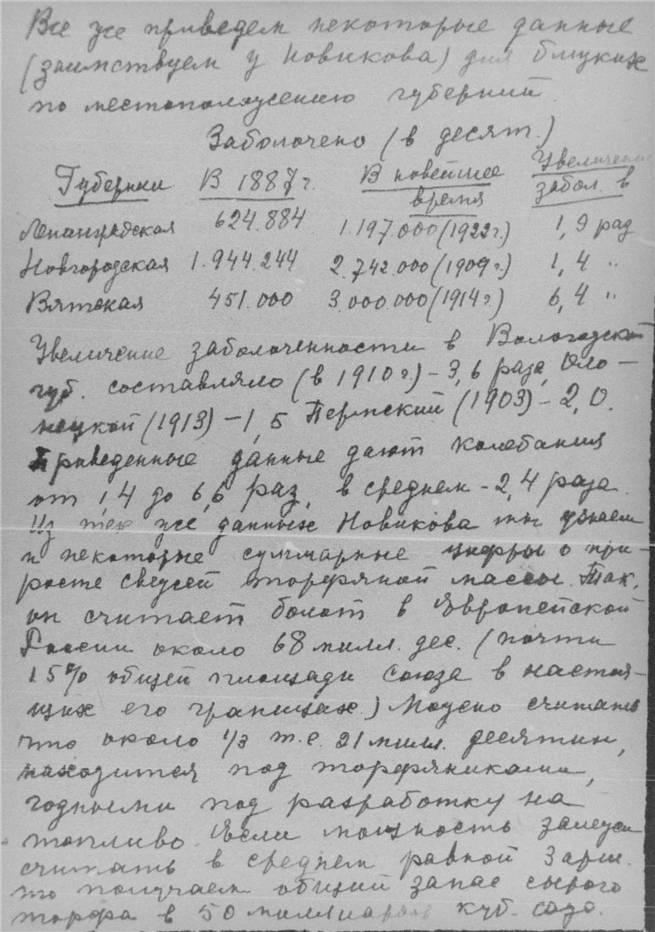 Все же приведем некоторые данные
(заимствуем у Новикова) для близких
по местоположению губерний.
Заболочено (в десят.)
Губернии В 1887 г. В новейшее время Увеличение забол. в
Ленинградская 624.884 1.197.000 (1922 г.) 1,9 раз
Новгородская 1.944.244 2.742.000 (1909 г.) 1,4 "
Вятская 451.000 3.000.000 (1914 г.) 6,4 "
Увеличение заболоченности в Вологодской
губ. составляло (в 1910 г) – 3,6 раза, Оло-
нецкой (1913) – 1,5 Пермский (1903) – 2,0.
Приведенные данные дают колебания
от 1,4 до 6,6 раз, в среднем – 2,4 раза.
Из тех же данных Новикова мы узнаем
и некоторые суммарные цифры о при-
росте свежей торфяной массы. Так,
он считает болот в Европейской
России около 68 милл. дес. (почти
15% общей площади Союза в настоя-
щих его границах.) Можно считать
что около 1/3 т.е. 21 милл. десятин,
находится под торфяниками,
годными под разработку на
топливо. Если мощность залежи
считать в среднем равной 3 арш.
то получаем общий запас сырого
торфа в 50 миллиардов куб. саж.